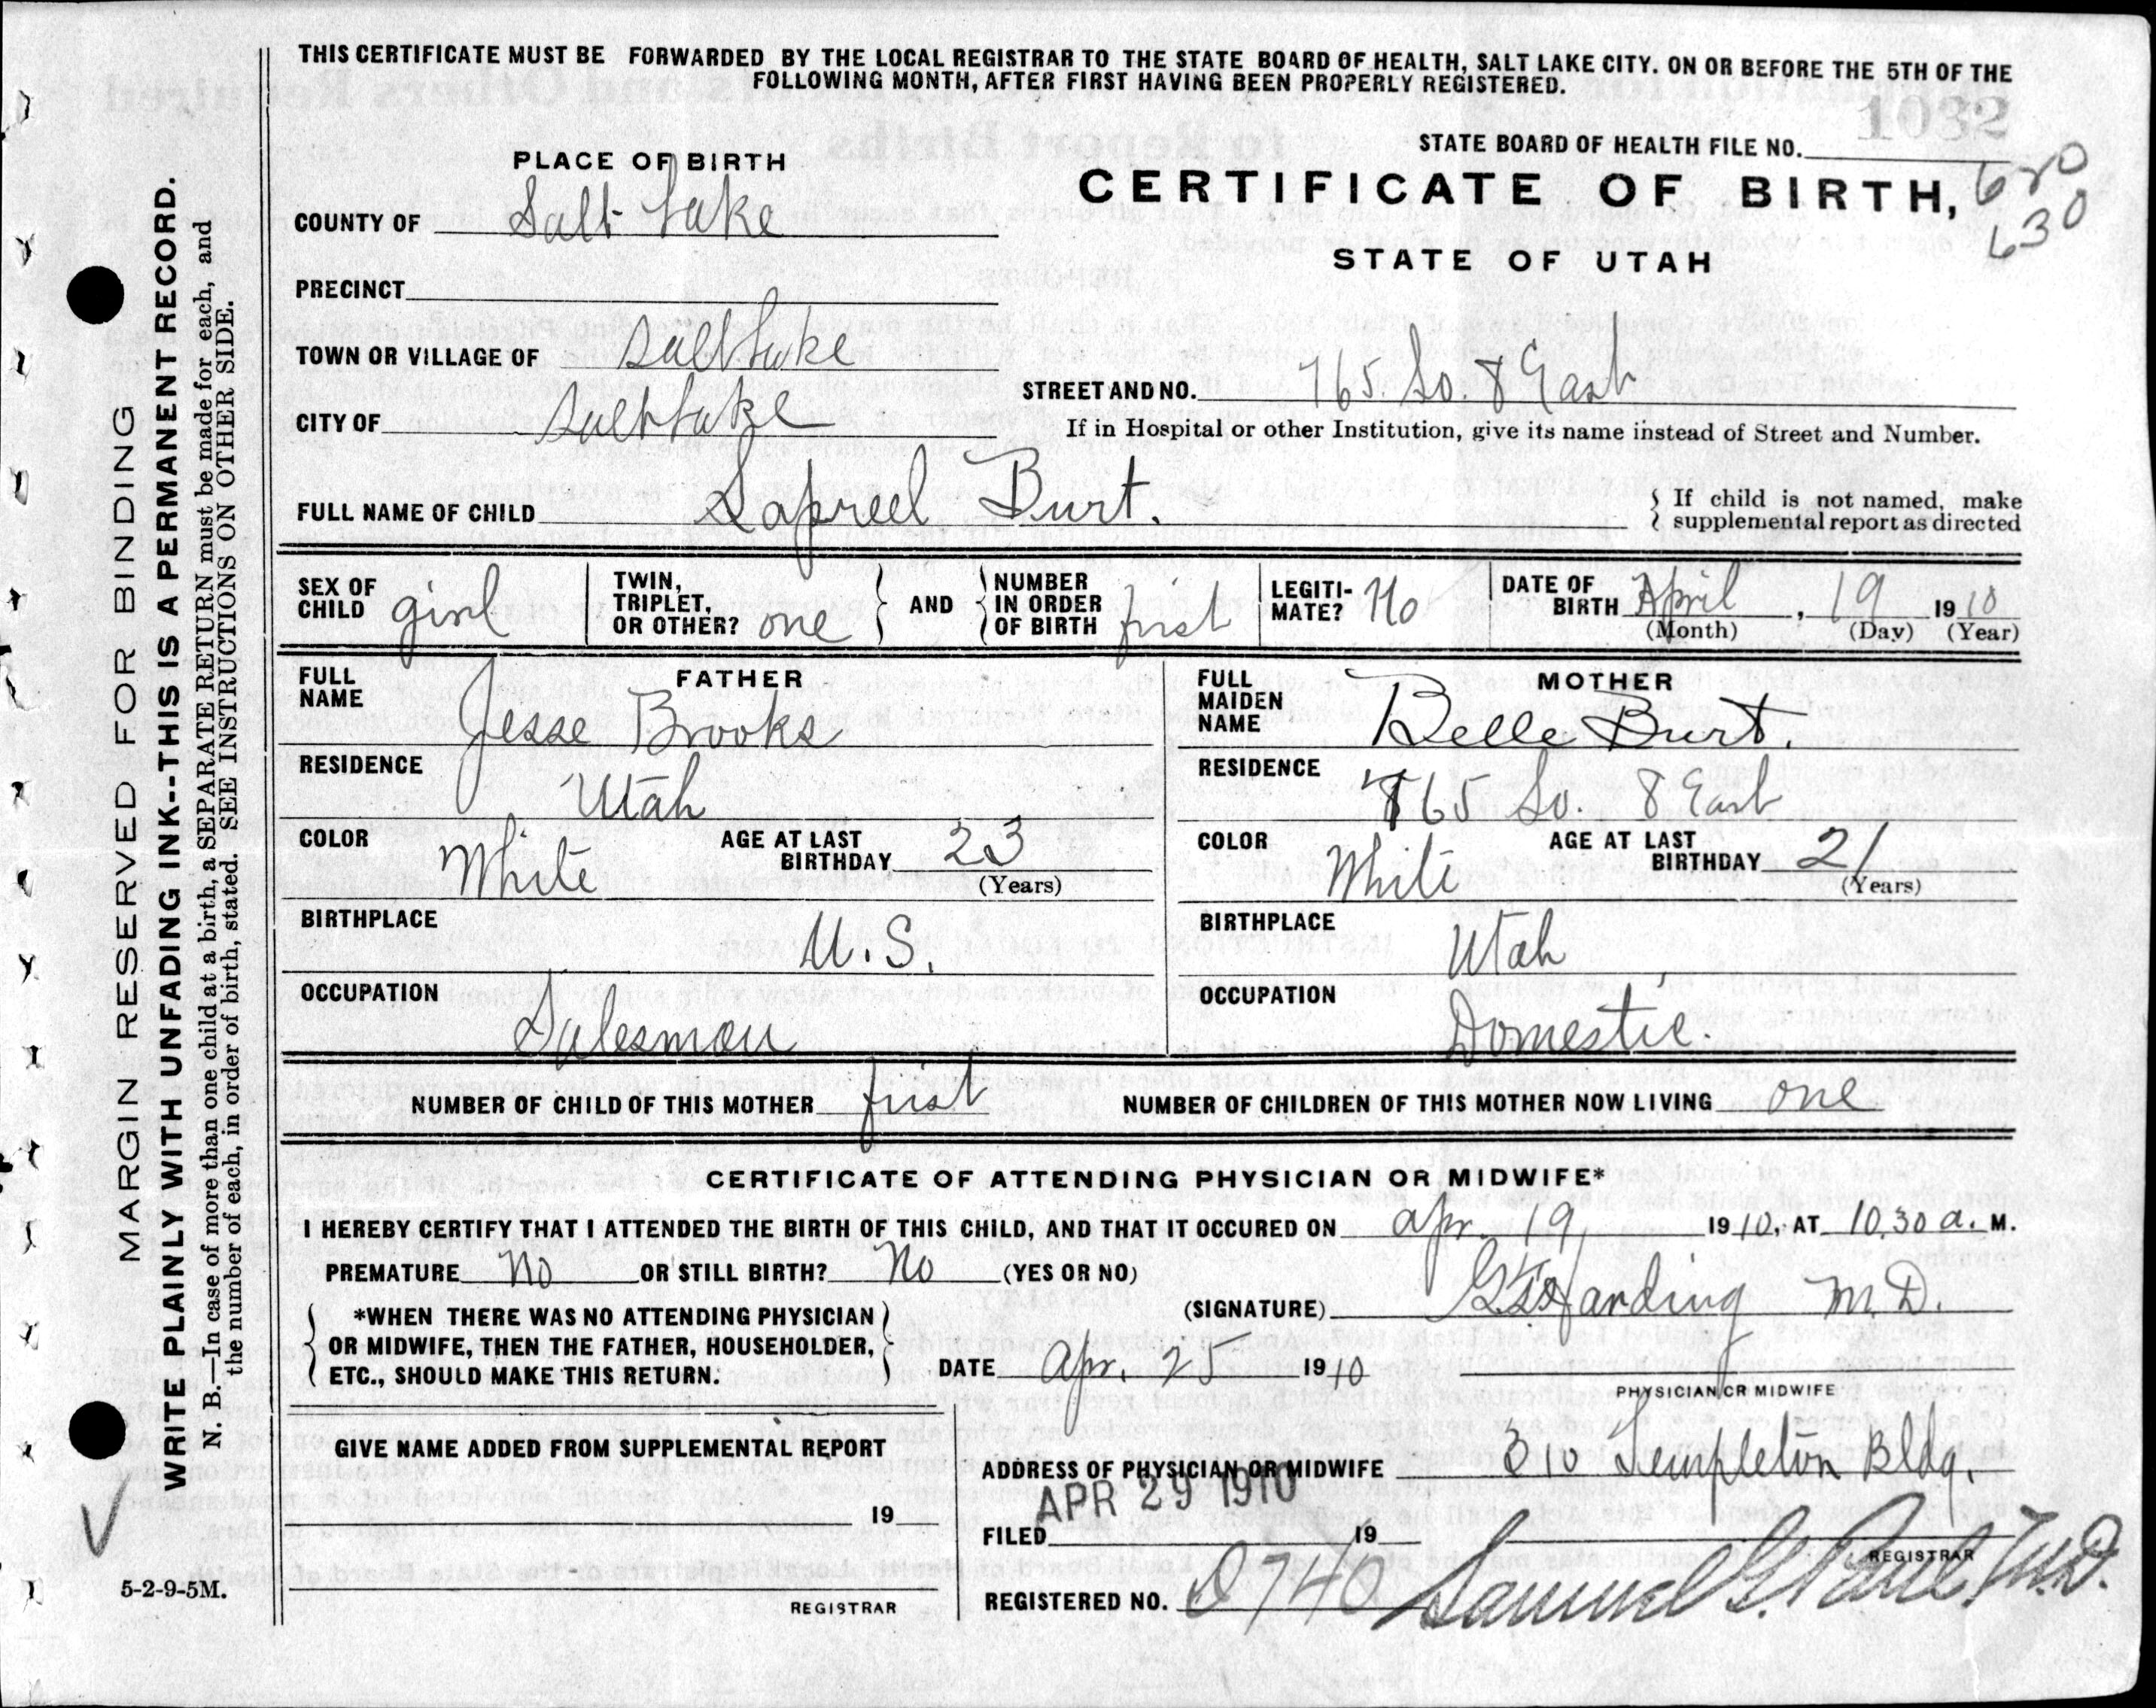 THIS CERTIFICATE MUST BE FORWARDED BY THE LOCAL REGISTRAR TO THE STATE BOARD OF HEALTH, SALT LAKE CITY. ON OR BEFORE THE 5TH OF THE
FOLLOWING MONTH, AFTER FIRST HAVING BEEN PROPERLY REGISTERED.
1032
STATE BOARD OF HEALTH FILE NO.
PLACE OF BIRTH
CERTIFICATE OF BIRTH,
630
STATE OF UTAH
COUNTY OF Salt Lake
PRECINCT
TOWN OR VILLAGE OF Salt Lake
STREET AND NO. 765 So. 8 East
CITY OF Salt Lake
If in Hospital or other Institution, give its name instead of Street and Number.
FULL NAME OF CHILD Lapreel Burt.
If child is not named, make
supplemental report as directed
SEX OF CHILD girl
TWIN, TRIPLET, OR OTHER? one
AND
NUMBER IN ORDER OF BIRTH first
LEGITI-MATE? No
DATE OF BIRTH April, 19 1910
(Month) (Day) (Year)
FATHER
FULL NAME Jesse Brooks
RESIDENCE Utah
COLOR White
AGE AT LAST BIRTHDAY 23
(Years)
BIRTHPLACE U.S.
OCCUPATION Salesman
MOTHER
FULL MAIDEN NAME Belle Burt.
RESIDENCE 765 So. 8 East
COLOR White
AGE AT LAST BIRTHDAY 21
(Years)
BIRTHPLACE Utah
OCCUPATION Domestic.
NUMBER OF CHILD OF THIS MOTHER first
NUMBER OF CHILDREN OF THIS MOTHER NOW LIVING one
CERTIFICATE OF ATTENDING PHYSICIAN OR MIDWIFE*
I HEREBY CERTIFY THAT I ATTENDED THE BIRTH OF THIS CHILD, AND THAT IT OCCURED ON Apr. 19, 1910, AT 10.30 a. M.
PREMATURE No OR STILL BIRTH? No (YES OR NO)
*WHEN THERE WAS NO ATTENDING PHYSICIAN
OR MIDWIFE, THEN THE FATHER, HOUSEHOLDER,
ETC., SHOULD MAKE THIS RETURN.
(SIGNATURE) Harding M.D.
DATE Apr. 25 1910
PHYSICIAN OR MIDWIFE
GIVE NAME ADDED FROM SUPPLEMENTAL REPORT
19
REGISTRAR
ADDRESS OF PHYSICIAN OR MIDWIFE 310 Templeton Bldg.
APR 29 1910
FILED 19
REGISTRAR
REGISTERED NO. 0740
Samuel G. Paul, M.D.
5-2-9-5M.
MARGIN RESERVED FOR BINDING
WRITE PLAINLY WITH UNFADING INK--THIS IS A PERMANENT RECORD.
N. B.—In case of more than one child at a birth, a SEPARATE RETURN must be made for each, and
the number of each, in order of birth, stated. SEE INSTRUCTIONS ON OTHER SIDE.